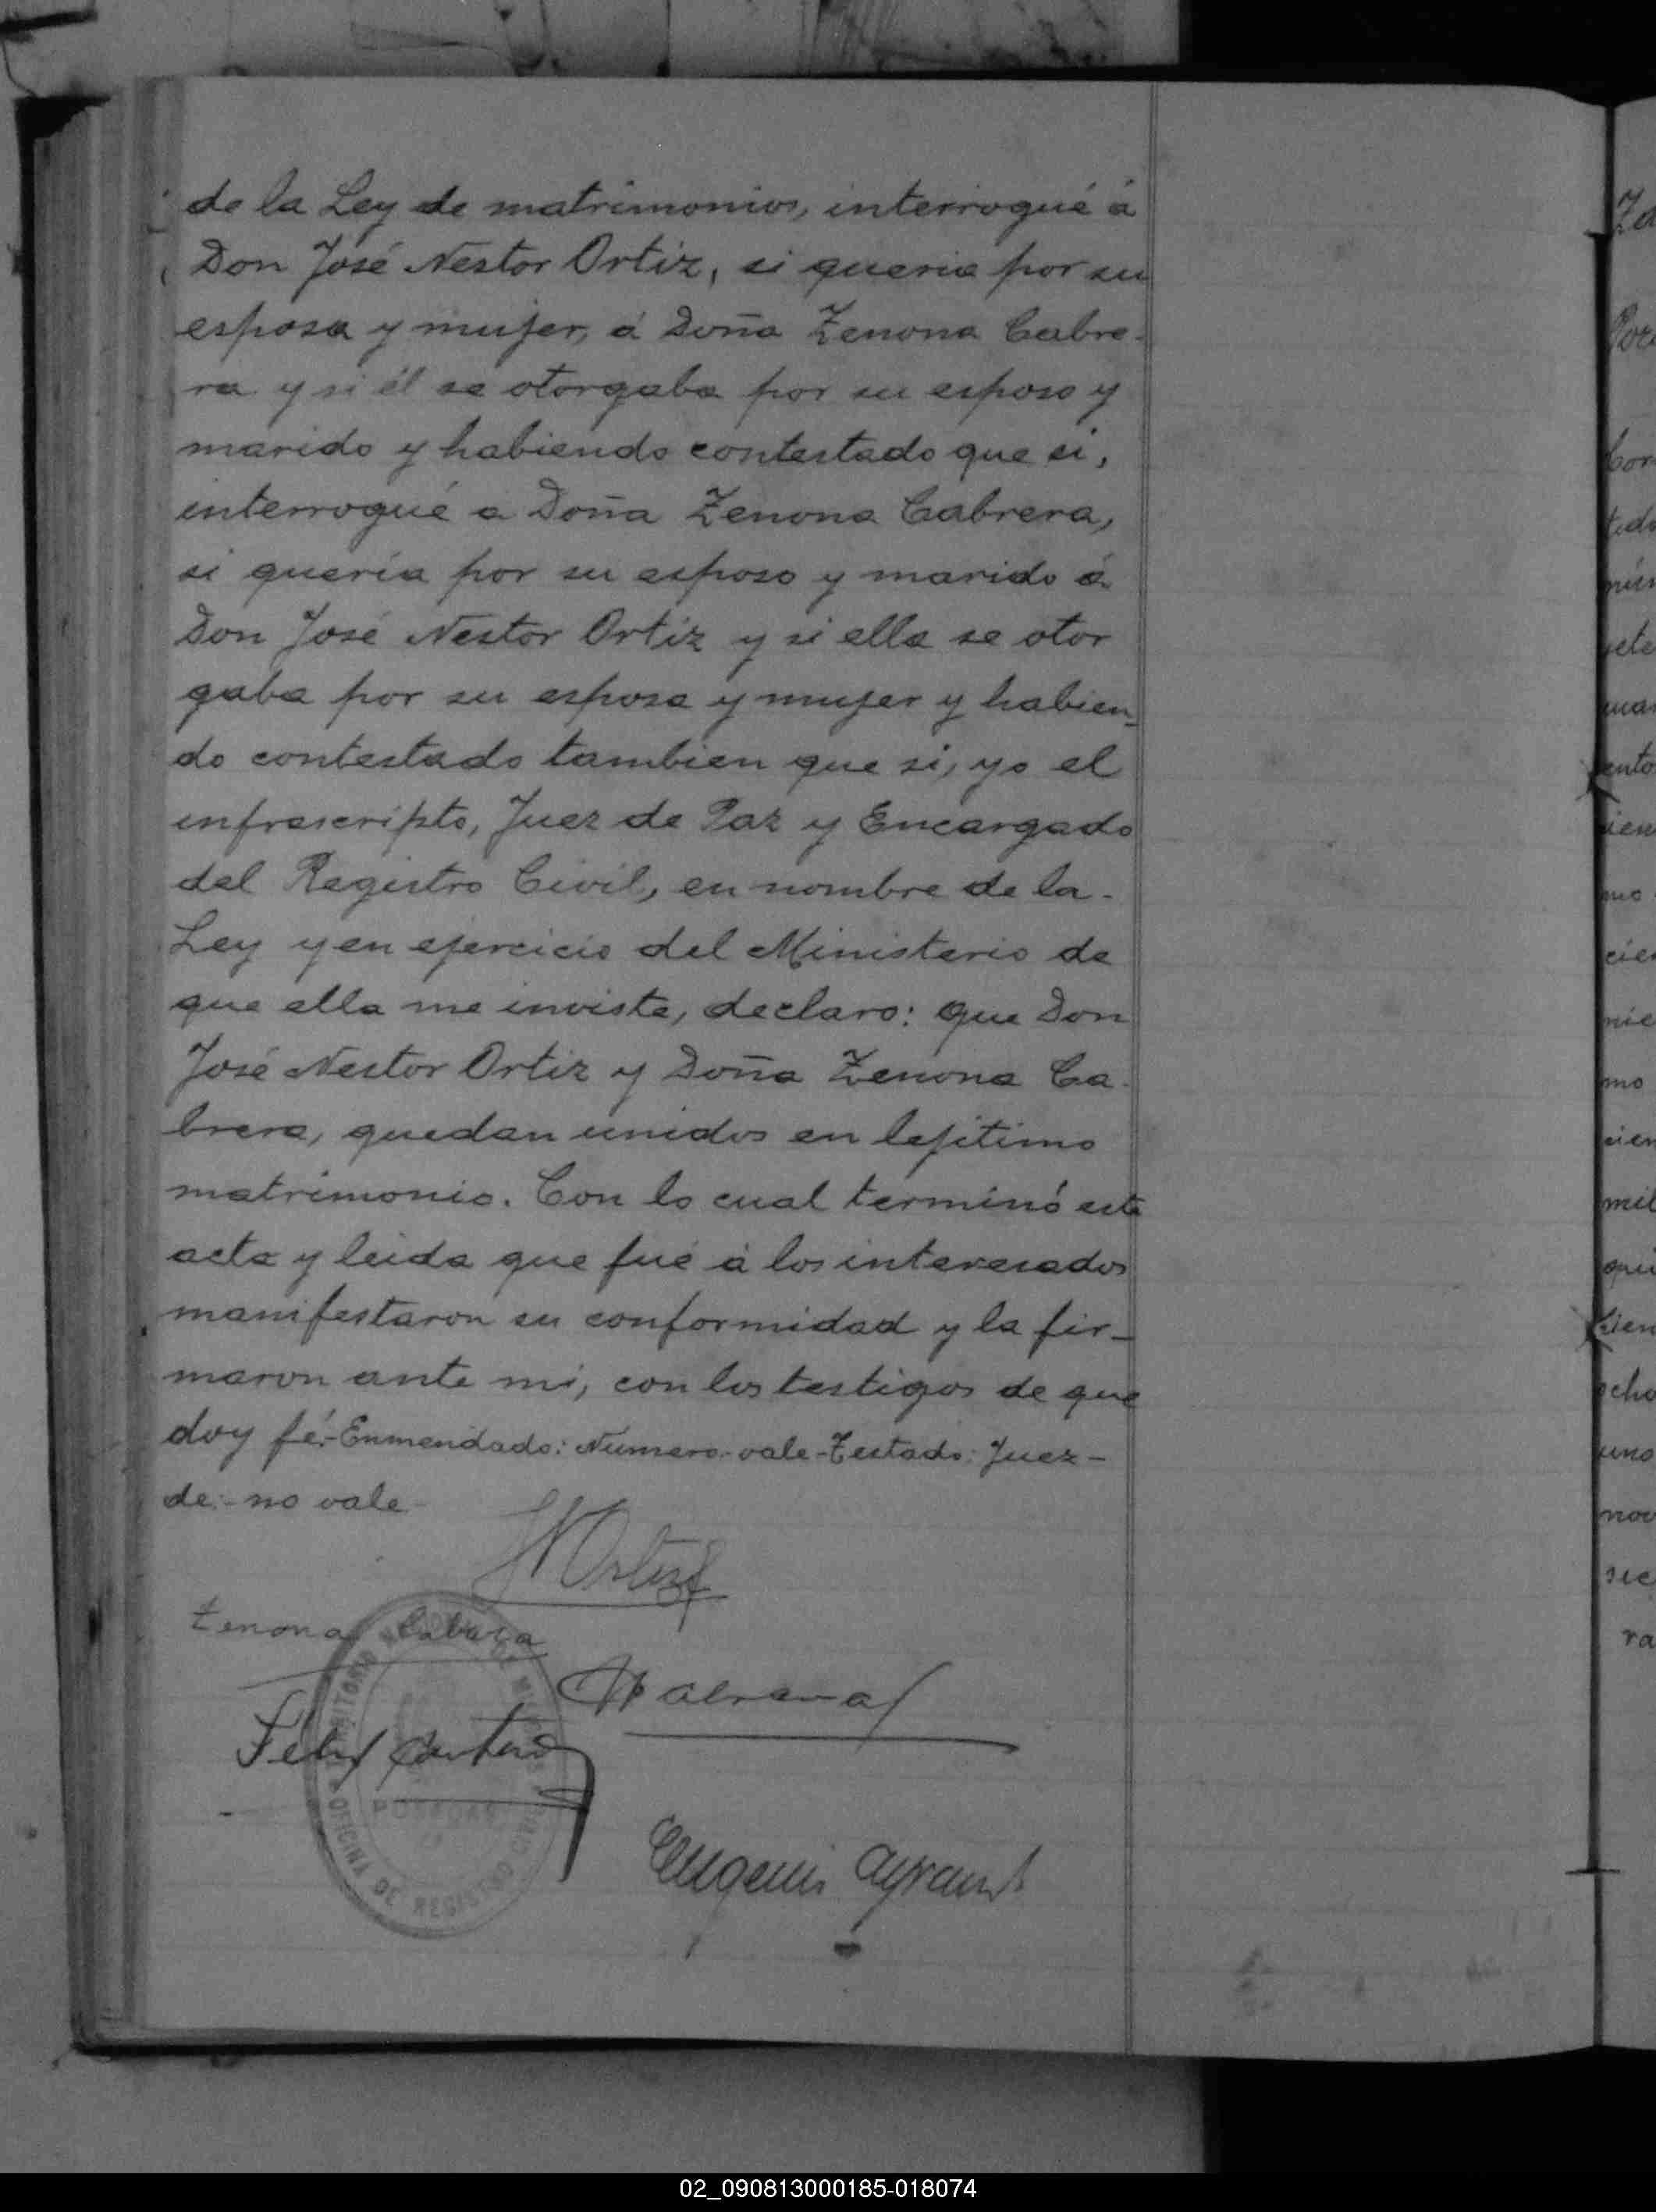 de la Ley de matrimonios, interrogué á
Don José Nestor Ortiz, si queria por su
esposa y mujer, á Doña Zenona Cabre-
ra y si él se otorgaba por su esposo y
marido y habiendo contestado que si,
interrogué a Doña Zenona Cabrera,
si quería por su esposo y marido á
Don José Nestor Ortiz y si ella se otor
gaba por su esposa y mujer y habien_
do contestado tambien que si, yo el
infrascripto, Juez de Paz y Encargado
del Registro Civil, en nombre de la -
Ley y en ejercicio del Ministerio de
que ella me inviste, declaro: que Don
José Nestor Ortiz y Doña Zenona Ca-
brera, quedan unidos en lejítimo
matrimonio. Con lo cual terminó esta
acta y leida que fué á los interesados
manifestaron su conformidad y la fir_
maron ante mi, con los testigos de que
doy fé.-Enmendado: Numero-vale-Testado: Juez-
de:- no vale-
Ortiz
Zenona Cabrera
Felix
Eugenio
TERRITORIO NACIONAL DE MISIONES
POSADAS
OFICINA DE REGISTRO CIVIL
02_090813000185-018074